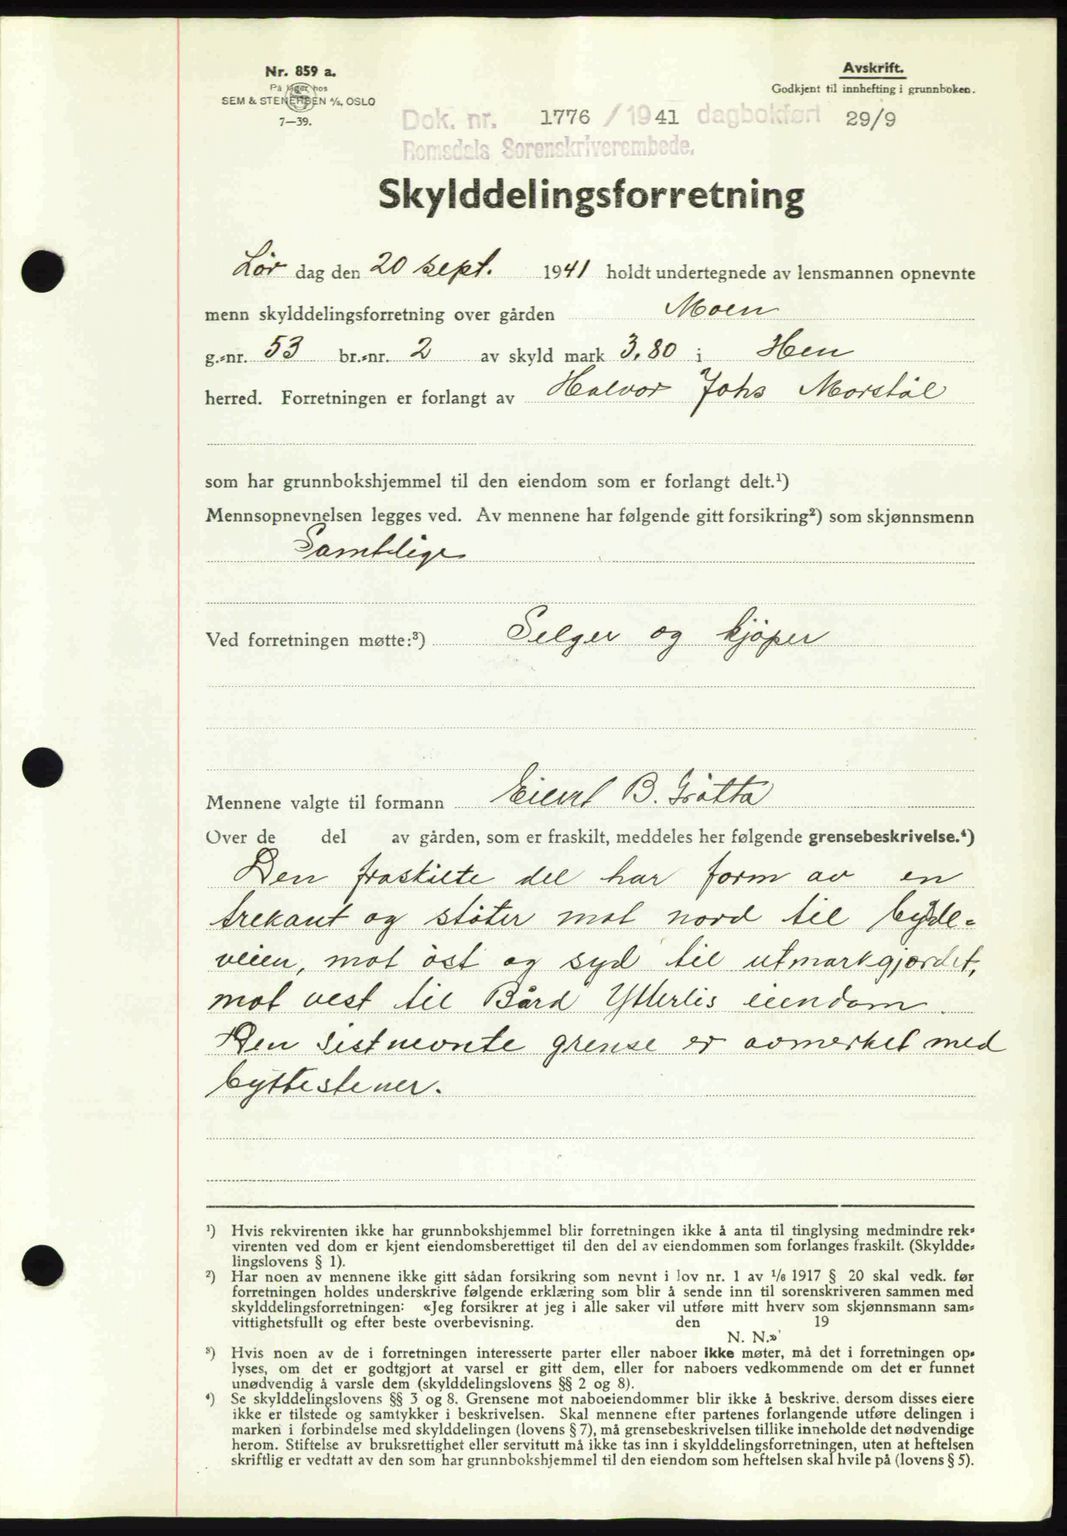 Nr. 859 a.
På lager hos
SEM & STENERSEN A/S, OSLO
7—39.
Avskrift.
Godkjent til innhefting i grunnboken.
Dok. nr. 1776 / 1941 dagbokført 29/9
Romsdals Sorenskriverembede.
Skylddelingsforretning
Lør dag den 20 sept. 1941 holdt undertegnede av lensmannen opnevnte
menn skylddelingsforretning over gården Moen
g.-nr. 53 br.-nr. 2 av skyld mark 3,80 i Hen
herred. Forretningen er forlangt av Halvor Johs Morstøl
som har grunnbokshjemmel til den eiendom som er forlangt delt.¹)
Mennsopnevnelsen legges ved. Av mennene har følgende gitt forsikring²) som skjønnsmenn
Samtlige
Ved forretningen møtte:³) Selger og kjøper
Mennene valgte til formann Eilert B. Grøtta
Over de del av gården, som er fraskilt, meddeles her følgende grensebeskrivelse.⁴)
Den fraskilte del har form av en
trekant og støter mot nord til bygde-
veien, mot øst og syd til utmarkgjerdet,
mot vest til Bård Ytterlis eiendom.
Den sistnevnte grense er avmerket med
byttestener.
¹) Hvis rekvirenten ikke har grunnbokshjemmel blir forretningen ikke å anta til tinglysing medmindre rek-
virenten ved dom er kjent eiendomsberettiget til den del av eiendommen som forlanges fraskilt. (Skyldde-
lingslovens § 1).
²) Har noen av mennene ikke gitt sådan forsikring som nevnt i lov nr. 1 av 1/6 1917 § 20 skal vedk. før
forretningen holdes underskrive følgende erklæring som blir å sende inn til sorenskriveren sammen med
skylddelingsforretningen: «Jeg forsikrer at jeg i alle saker vil utføre mitt hverv som skjønnsmann sam-
vittighetsfullt og efter beste overbevisning. den 19
N. N.»
³) Hvis noen av de i forretningen interesserte parter eller naboer ikke møter, må det i forretningen op-
lyses, om det er godtgjort at varsel er gitt dem, eller for naboers vedkommende om det er funnet
unødvendig å varsle dem (skylddelingslovens §§ 2 og 8).
⁴) Se skylddelingslovens §§ 3 og 8. Grensene mot naboeiendommer blir ikke å beskrive, dersom disses eiere
ikke er tilstede og samtykker i beskrivelsen. Skal mennene efter partenes forlangende utføre delingen i
marken i forbindelse med skylddelingen (lovens § 7), må grensebeskrivelsen tillike inneholde det nødvendige
herom. Stiftelse av bruksrettighet eller servitutt må ikke tas inn i skylddelingsforretningen, uten at heftelsen
skriftlig er vedtatt av den som har grunnbokshjemmel til den eiendom som heftelsen skal hvile på (lovens § 5).